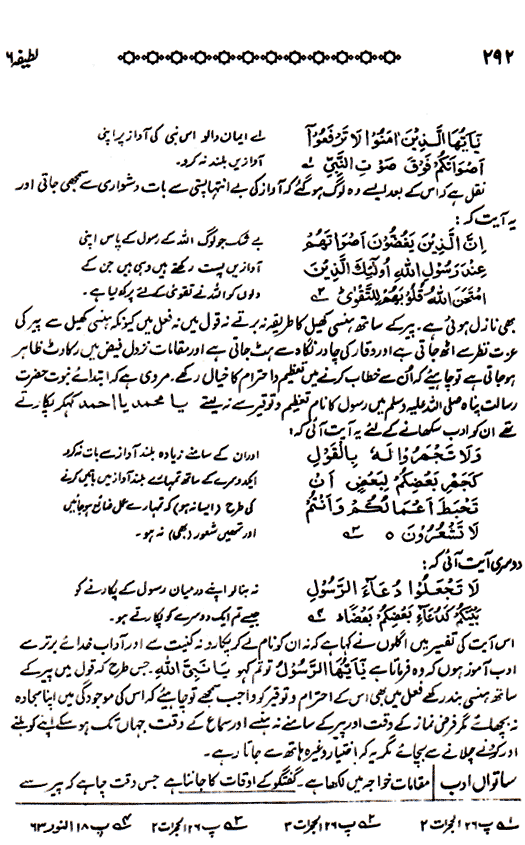 ۲۹۲ لطیفہ ۶
یٰۤاَیُّهَا الَّذِیْنَ اٰمَنُوْا لَا تَرْفَعُوْۤا اے ایمان والو اس نبی کی آواز پر اپنی
اَصْوَاتَكُمْ فَوْقَ صَوْتِ النَّبِیِّ ۱؎ آوازیں بلند نہ کرو۔
نقل ہے کہ اس کے بعد ایسے وہ لوگ ہوگئے کہ آواز کی بے انتہا پستی سے بات دشواری سے سمجھی جاتی اور
یہ آیت کہ :
اِنَّ الَّذِیْنَ یَغُضُّوْنَ اَصْوَاتَهُمْ بے شک جو لوگ اللہ کے رسول کے پاس اپنی
عِنْدَ رَسُوْلِ اللّٰهِ اُولٰٓئِكَ الَّذِیْنَ آوازیں پست رکھتے ہیں وہی ہیں جن کے
امْتَحَنَ اللّٰهُ قُلُوْبَهُمْ لِلتَّقْوٰی ۲؎ دلوں کو اللہ نے تقویٰ کے لئے پرکھ لیا ہے۔
بھی نازل ہوئی ہے۔ پیر کے ساتھ ہنسی کھیل کا طریقہ نہ برتے نہ قول میں نہ فعل میں کیونکہ ہنسی کھیل سے پیر کی
عزت نظر سے اٹھ جاتی ہے اور وقار کی چادر نگاہ سے ہٹ جاتی ہے اور مقامات نزول فیض میں رکاوٹ ظاہر
ہوجاتی ہے تو چاہیئے کہ اُن سے خطاب کرنے میں تعظیم و احترام کا خیال رکھے۔ مروی ہے کہ ابتدائے نبوت حضرت
رسالت پناہ صلی اللہ علیہ وسلم میں رسول کا نام تعظیم و توقیر سے نہ لیتے یا محمد یا احمد کہہ کر پکارتے
تھے ان کو ادب سکھانے کے لئے یہ آیت آئی کہ:
وَلَا تَجْهَرُوْا لَهٗ بِالْقَوْلِ اور ان کے سامنے زیادہ بلند آواز سے بات نہ کرو
كَجَهْرِ بَعْضِكُمْ لِبَعْضٍ اَنْ ایک دوسرے کے ساتھ تمہارے بلند آواز میں باتیں کرنے
تَحْبَطَ اَعْمَالُكُمْ وَاَنْتُمْ کی طرح (ایسا نہ ہو) کہ تمہارے عمل ضائع ہوجائیں
لَا تَشْعُرُوْنَ ۵ ۳؎ اور تمھیں شعور (بھی) نہ ہو۔
دوسری آیت آئی کہ :
لَا تَجْعَلُوْا دُعَآءَ الرَّسُوْلِ نہ بنالو اپنے درمیان رسول کے پکارنے کو
بَیْنَكُمْ كَدُعَآءِ بَعْضِكُمْ بَعْضًا ۴؎ جیسے تم ایک دوسرے کو پکارتے ہو۔
اس آیت کی تفسیر میں اگلوں نے کہا ہے کہ نہ ان کو نام لے کر پکارو نہ کنیت سے اور آداب خدائے برتر سے
ادب آموز ہوں کہ وہ فرماتا ہے یٰۤاَیُّهَا الرَّسُوْلُ تو تم کہو یَا نَبِیَّ اللّٰهِ۔ جس طرح کہ قول میں پیر کے
ساتھ ہنسی بند رکھے فعل میں بھی اس کے احترام و توقیر کو واجب سمجھے تو چاہیئے کہ اس کی موجودگی میں اپنا سجادہ
نہ بچھائے مگر فرض نماز کے وقت اور پیر کے سامنے نہ ہنسے اور سماع کے وقت جہاں تک ہو سکے اپنے کو ہلنے
اور کودنے چلانے سے بچائے مگر یہ کہ اختیار وغیرہ ہاتھ سے جاتا رہے۔
ساتواں ادب مقامات خواجہ میں لکھا ہے۔ گفتگو کے اوقات کا جاننا ہے جس وقت چاہے کہ پیر سے
۱؎ پ ۲۶ الحجرات ۲ ۲؎ پ ۲۶ الحجرات ۳ ۳؎ پ ۲۶ الحجرات ۲ ۴؎ پ ۱۸ النور ۶۳